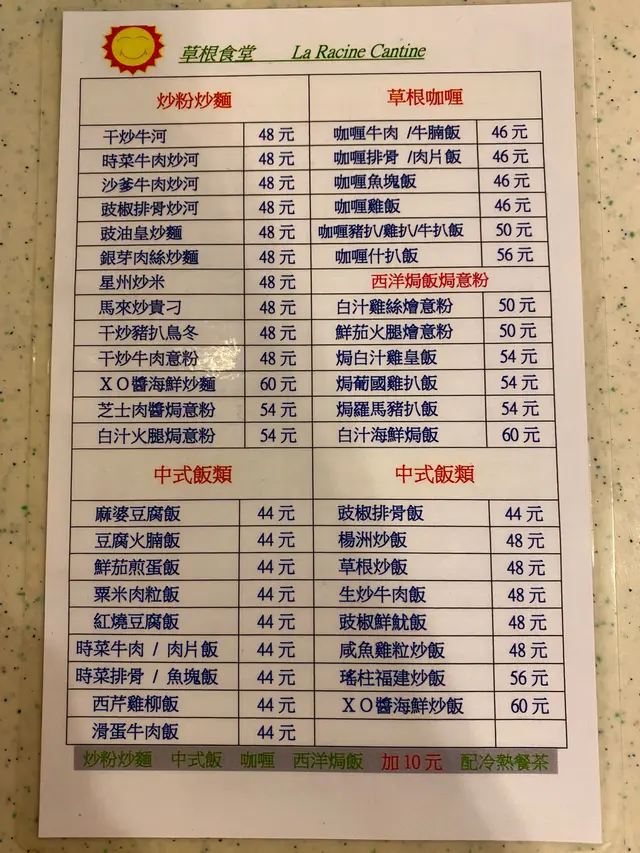 草根食堂 La Racine Cantine
炒粉炒麵
干炒牛河 48 元
時菜牛肉炒河 48 元
沙爹牛肉炒河 48 元
豉椒排骨炒河 48 元
豉油皇炒麵 48 元
銀芽肉絲炒麵 48 元
星州炒米 48 元
馬來炒貴刁 48 元
干炒豬扒烏冬 48 元
干炒牛肉意粉 48 元
XO醬海鮮炒麵 60 元
芝士肉醬焗意粉 54 元
白汁火腿焗意粉 54 元
草根咖喱
咖喱牛肉 /牛腩飯 46 元
咖喱排骨 /肉片飯 46 元
咖喱魚塊飯 46 元
咖喱雞飯 46 元
咖喱豬扒/雞扒/牛扒飯 50 元
咖喱什扒飯 56 元
西洋焗飯焗意粉
白汁雞絲燴意粉 50 元
鮮茄火腿燴意粉 50 元
焗白汁雞皇飯 54 元
焗葡國雞扒飯 54 元
焗羅馬豬扒飯 54 元
白汁海鮮焗飯 60 元
中式飯類
麻婆豆腐飯 44 元
豆腐火腩飯 44 元
鮮茄煎蛋飯 44 元
粟米肉粒飯 44 元
紅燒豆腐飯 44 元
時菜牛肉 / 肉片飯 44 元
時菜排骨 / 魚塊飯 44 元
西芹雞柳飯 44 元
滑蛋牛肉飯 44 元
中式飯類
豉椒排骨飯 44 元
楊洲炒飯 48 元
草根炒飯 48 元
生炒牛肉飯 48 元
豉椒鮮魷飯 48 元
咸魚雞粒炒飯 48 元
瑤柱福建炒飯 56 元
XO醬海鮮炒飯 60 元
炒粉炒麵 中式飯 咖喱 西洋焗飯 加 10 元 配冷熱餐茶